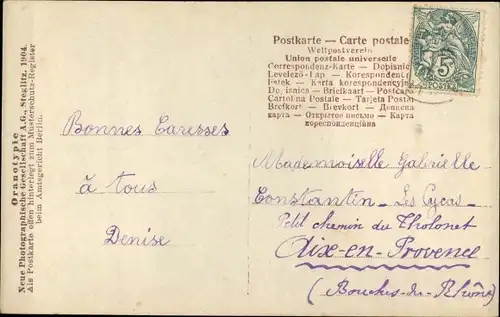 Oranotypie
Neue Photographische Gesellschaft A.G., Steglitz. 1904.
Als Postkarte offen hinterlegt zum Musterschutz-Register
beim Amtsgericht Berlin.
Bonnes Caresses
à tous
Denise
Postkarte — Carte postale
Weltpostverein
Union postale universelle
Correspondenz-Karte — Dopisnic
Levelező-Lap — Korespondent
Estek — Karta korespondencyjn
Dopisnica — Briefkaart — Postcar
Cartolina Postale — Tarjeta Posta
Brefkort — Brevkort — Дописна
карта — Открытое письмо — Карта
кореспонденційна
5
POSTES
Mademoiselle Gabrielle
Constantin - Les Cycas -
Petit chemin du Tholonet
Aix-en-Provence
(Bouches-du-Rhône)